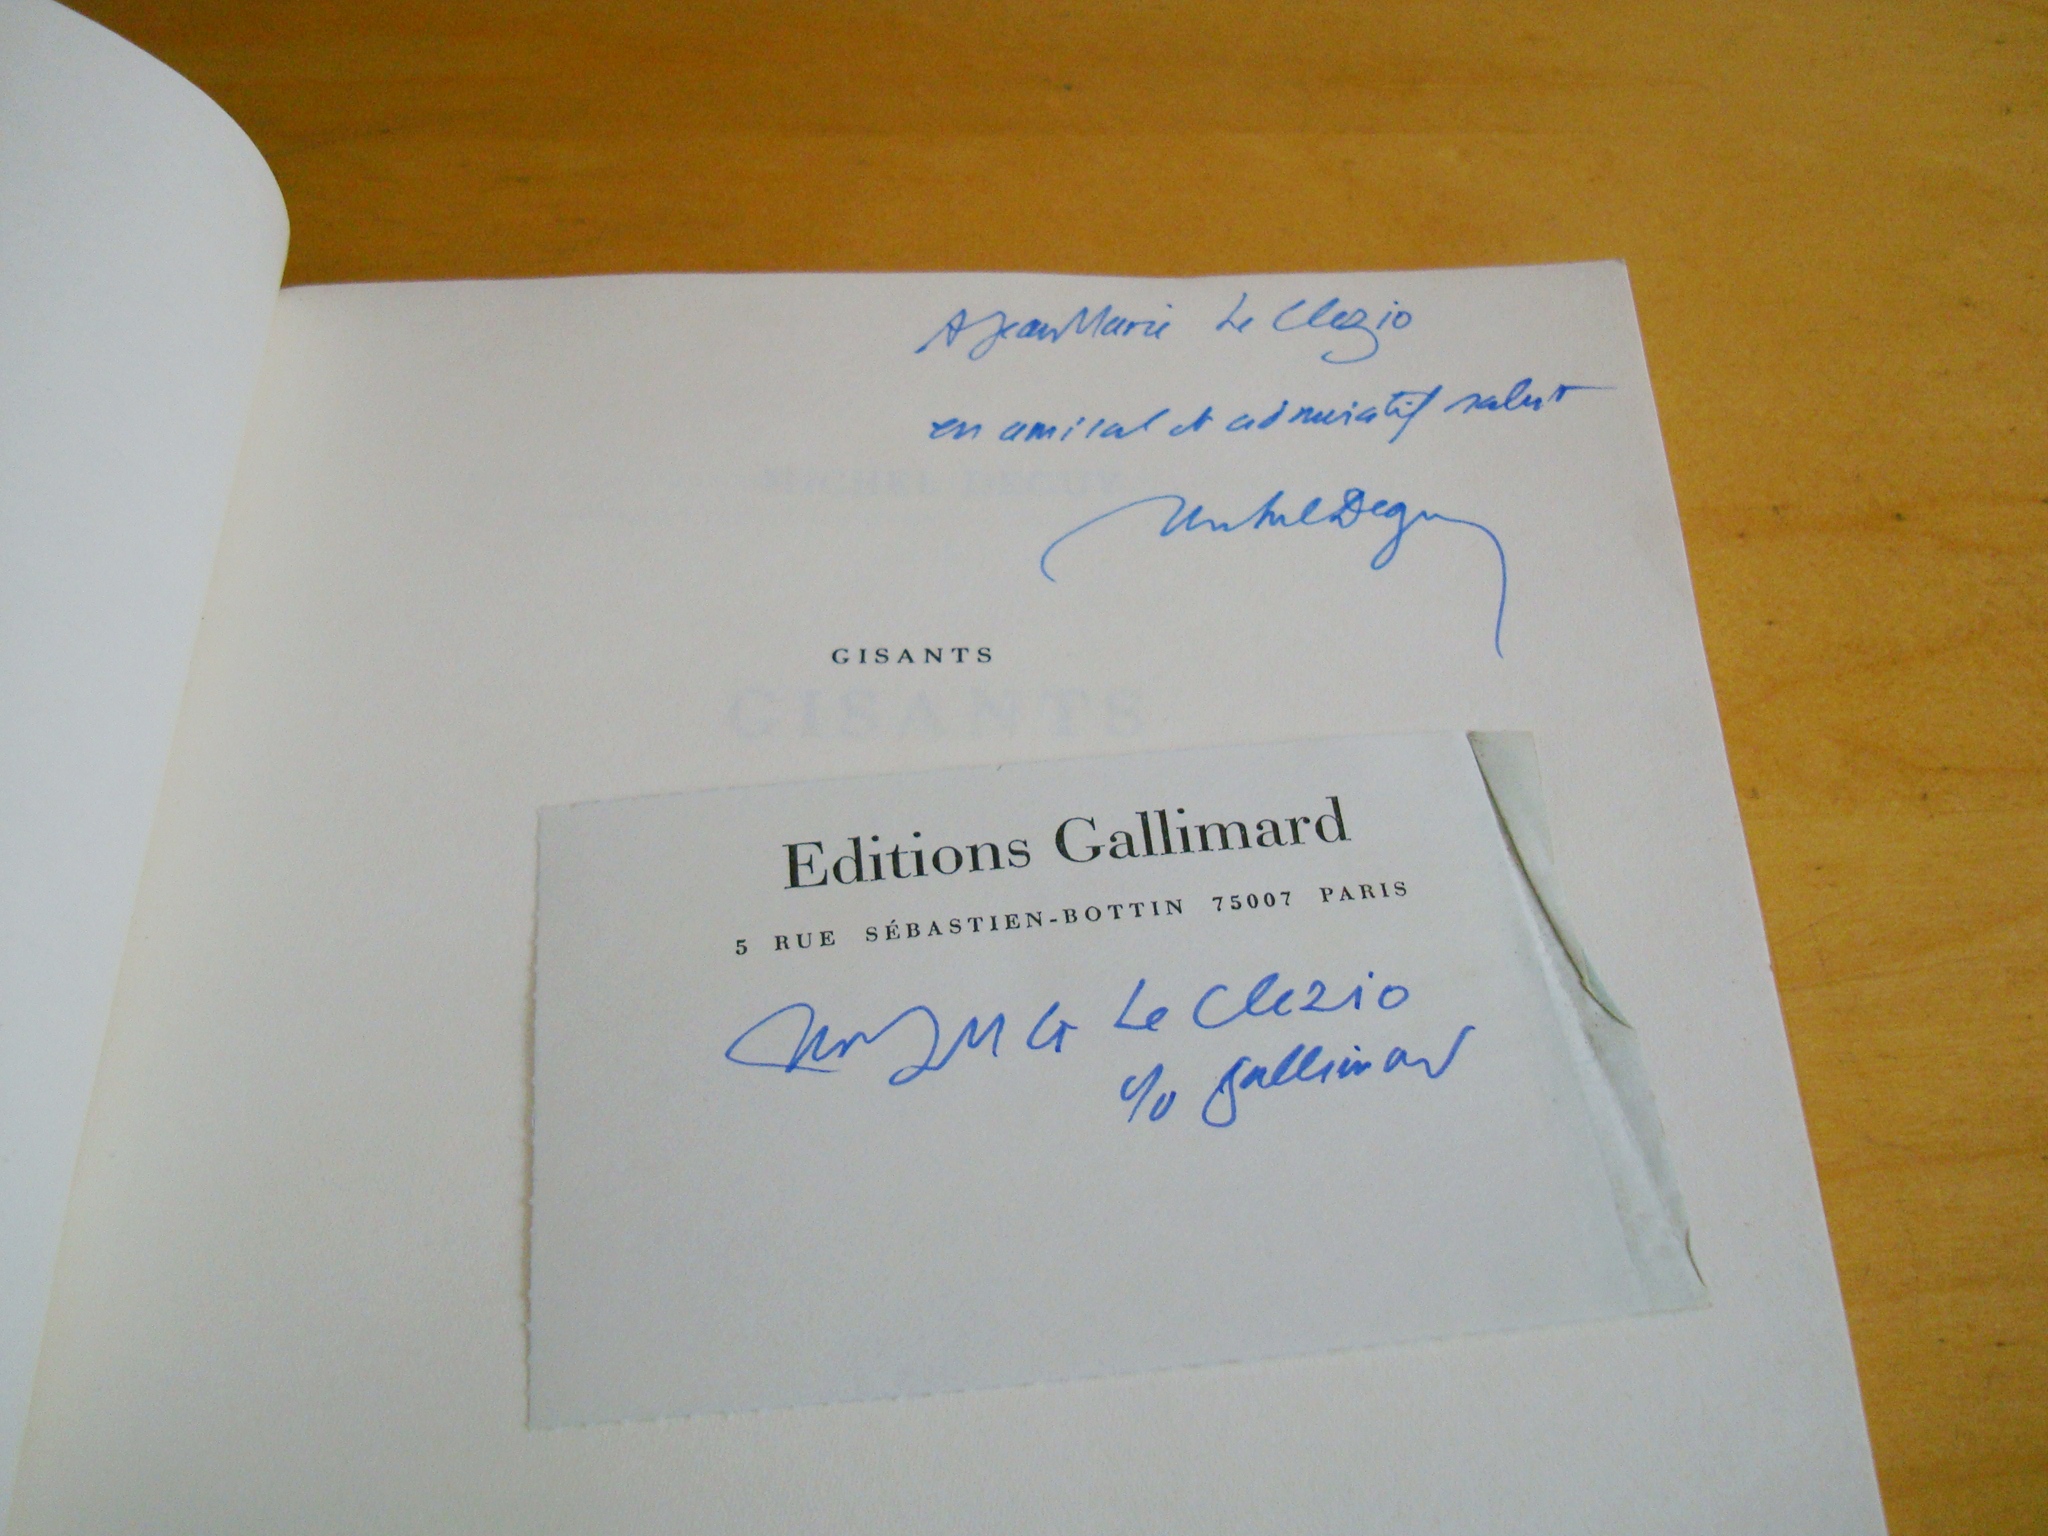 A Jean Marie Le Clezio
en amical et admiratif salut
Michel Deguy
MICHEL DEGUY
GISANTS
GISANTS
Editions Gallimard
5 RUE SÉBASTIEN-BOTTIN 75007 PARIS
J M G Le Clezio
c/o Gallimard